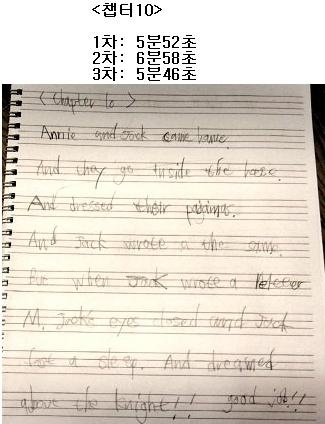 <챕터10>
1차: 5분52초
2차: 6분58초
3차: 5분46초
< Chapter 10 >
Annie and Jack came home.
And they go inside the house.
And dressed their pajamas.
And Jack wrote a the same.
But when Jack wrote a
M. Jack's eyes closed and Jack
a sleep. And dreamed
about the knight!! good job!!